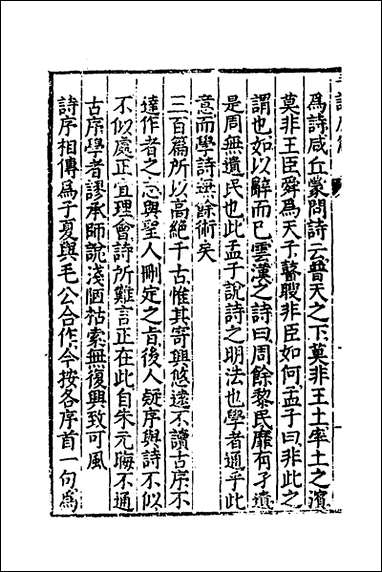 爲詩咸丘蒙問詩云普天之下莫非王土率土之濱
莫非王臣舜爲天子瞽瞍非臣如何孟子曰非此之
謂也如以辭而已雲漢之詩曰周餘黎民靡有孑遺
是周無遺民也此孟子說詩之明法也學者通乎此
意而學詩無餘術矣
三百篇所以高絕千古惟其寄興悠遠不讀古序不
達作者之志與聖人刪定之旨後人疑序與詩不似
不似處正宜理會詩所難言正在此自朱元晦不通
古序學者謬承師說淺陋枯索無復興致可風
詩序相傳爲子夏與毛公合作今按各序首一句爲